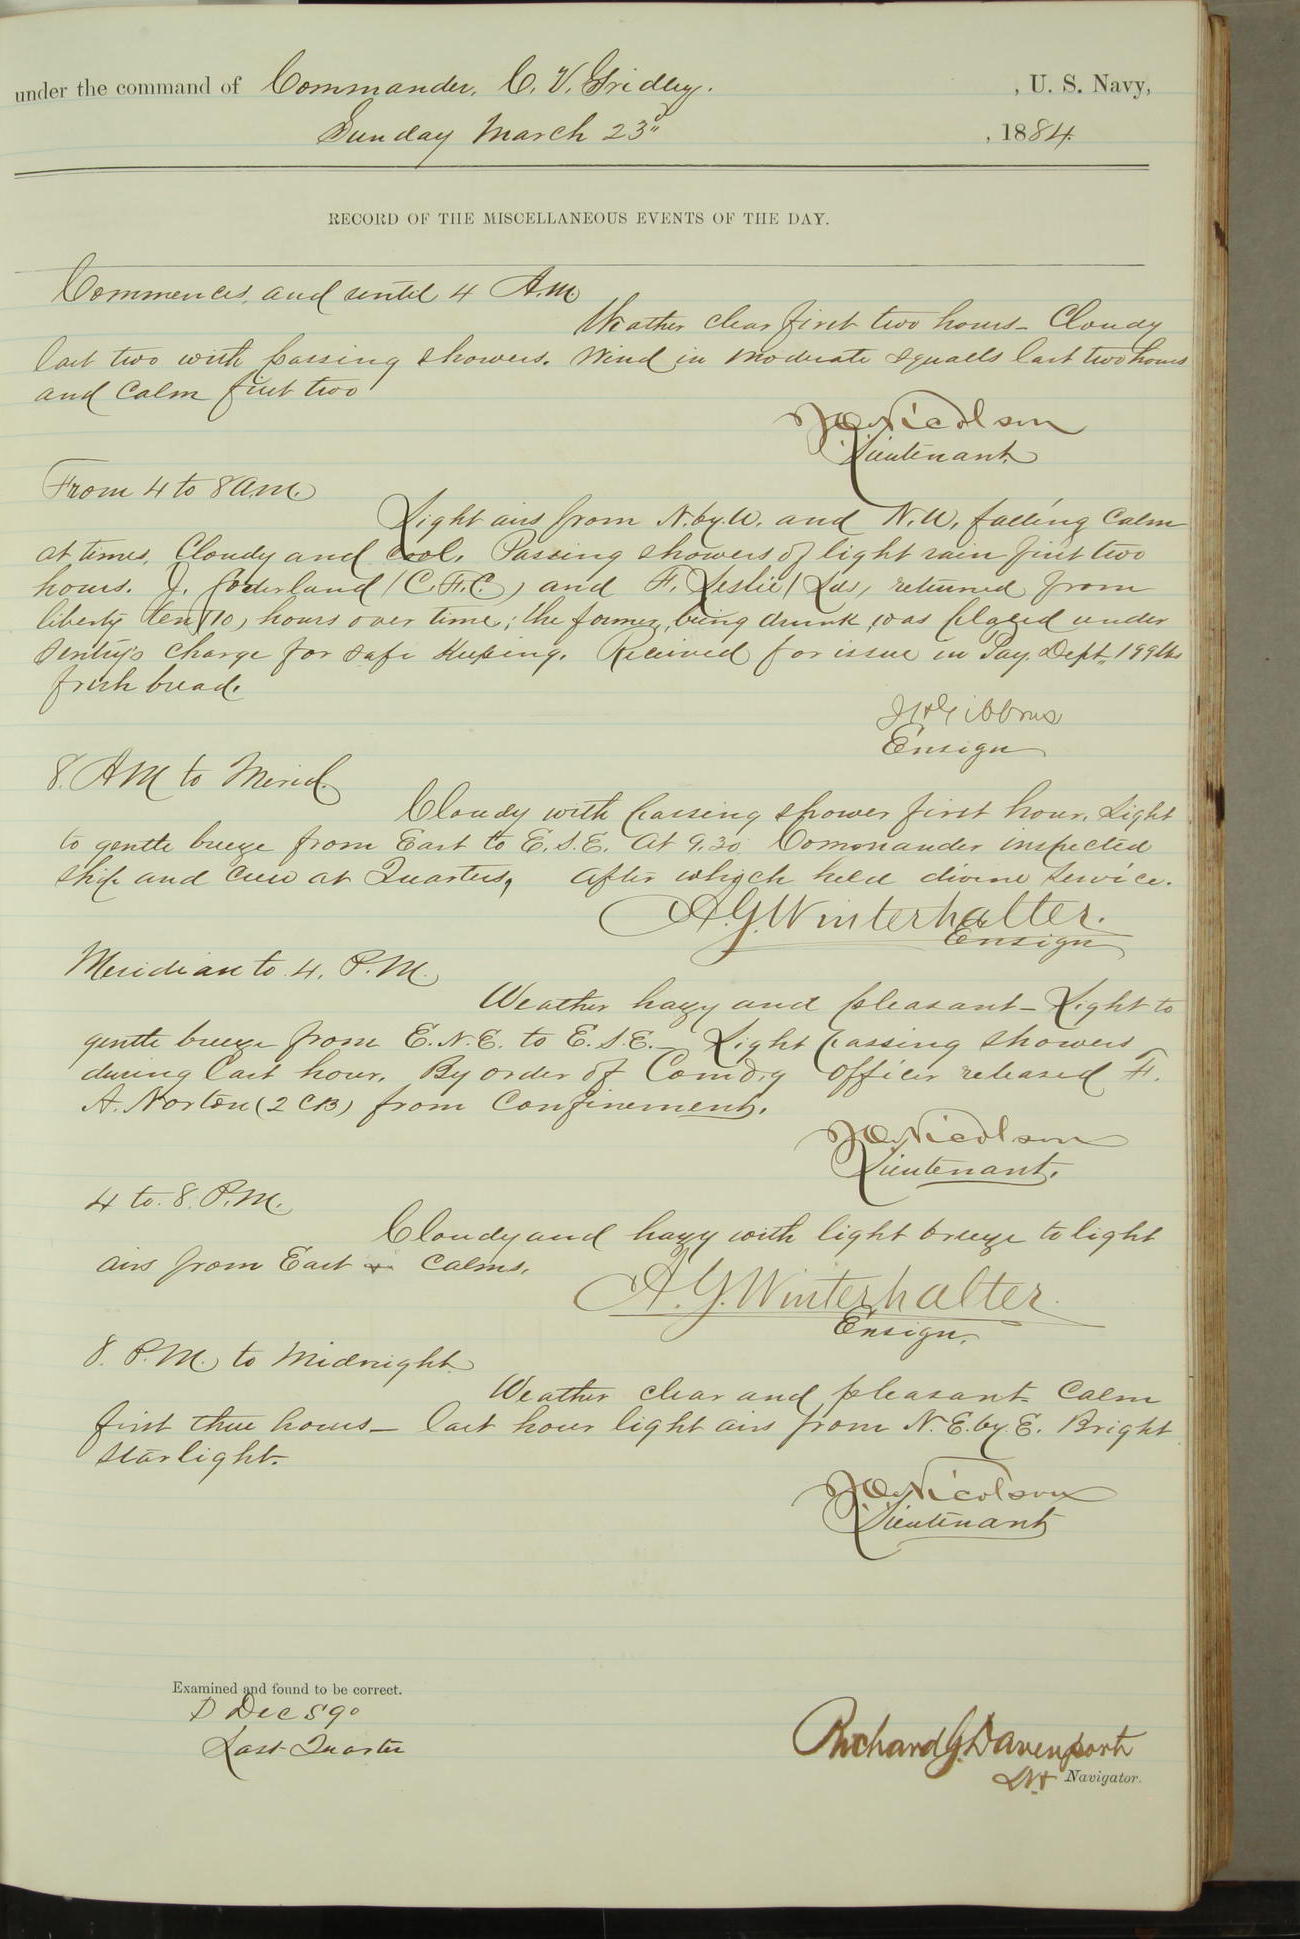 under the command of Commander, C. V. Gridley. , U. S. Navy,
Sunday March 23d , 1884.
RECORD OF THE MISCELLANEOUS EVENTS OF THE DAY.
Commences and until 4 A.M.
Weather clear first two hours – Cloudy
last two with passing showers. Wind in moderate squalls last two hours
and calm first two
Nicolson
Lieutenant.
From 4 to 8 A.M.
Light airs from N. by W. and N.W. falling calm
at times. Cloudy and cool. Passing showers of light rain first two
hours. J. (C.F.C.) and F. Leslie (Lds) returned from
liberty ten (10) hours over time; the former, being drunk, was placed under
sentry's charge for safe keeping. Received for issue in Pay. Dept. 199 lbs
fresh bread.
J H Gibbons
Ensign
8. A M to Merid.
Cloudy with passing shower first hour. Light
to gentle breeze from East to E.S.E. At 9.30 Commander inspected
ship and crew at Quarters, after which held divine service.
A. G. Winterhalter.
Ensign
Meridian to 4. P.M.
Weather hazy and pleasant – Light to
gentle breeze from E.N.E. to E.S.E. – Light passing showers
during last hour. By order of Comd'g officer released F.
A. Norton (2 CB) from confinement.
Nicolson
Lieutenant.
4 to 8. P.M.
Cloudy and hazy with light breeze to light
airs from East calms.
A. G. Winterhalter.
Ensign.
8. P.M. to Midnight.
Weather clear and pleasant. Calm
first three hours – last hour light airs from N.E. by E. Bright
starlight.
Nicolson
Lieutenant
Examined and found to be correct.
D Dec S 9°
Last Quarter
Richard G. Davenport
Lt Navigator.